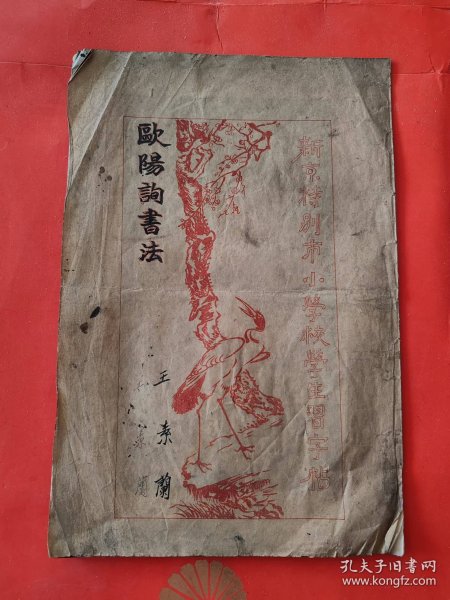 新京特别市小学校學生習字帖
歐陽詢書法
王素蘭
孔夫子旧书网
www.kongfz.com